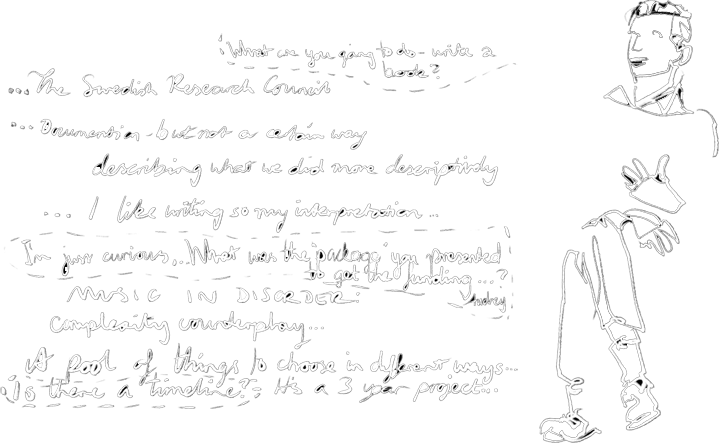 'What are you going to do - write a
book?
...The Swedish Research Council
... Documention - but not a cetain way
describing what we did more descriptively
... I like writing so my interpretation...
I'm just curious... What was the 'package' you presented
to get the funding...?
Audrey
MUSIC IN DISORDER:
Complexity counterplay...
A pool of things to choose in different ways...
'Is there a timeline?' It's a 3 year project...